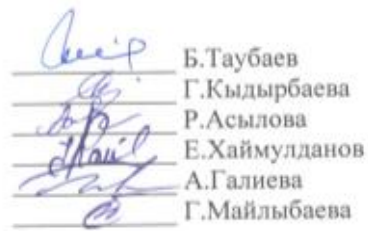 Б.Таубаев
Г.Кыдырбаева
Р.Асылова
Е.Хаймулданов
А.Галиева
Г.Майлыбаева